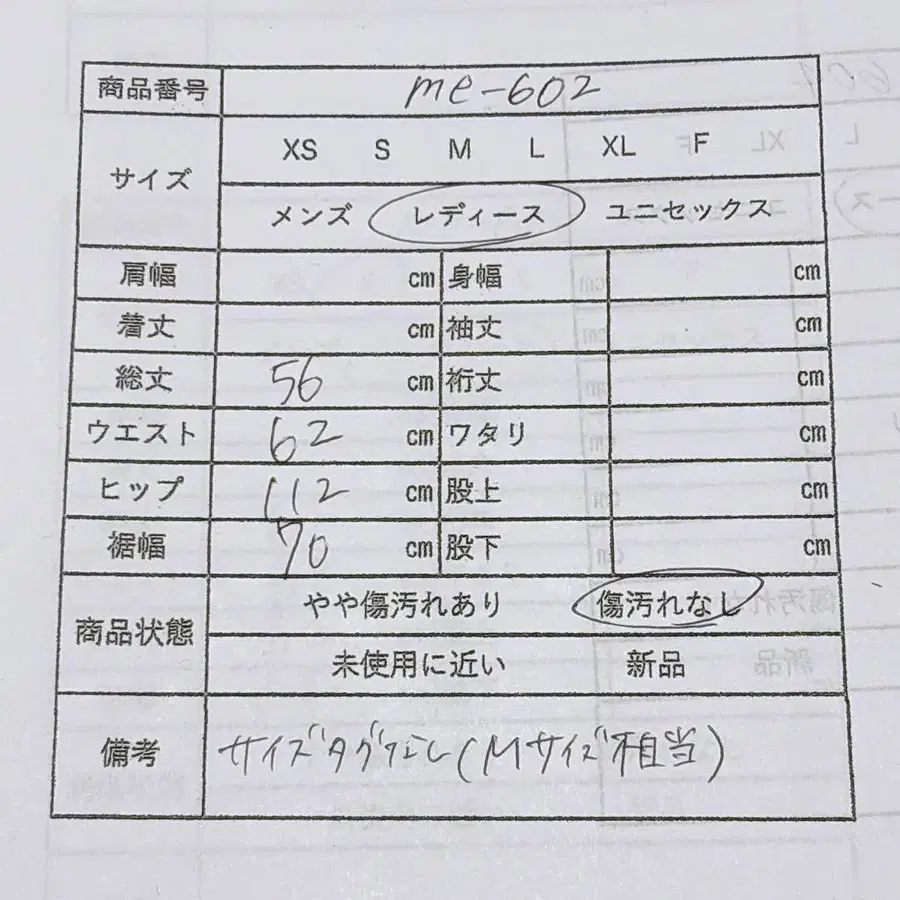 商品番号 me-602
サイズ XS S M L XL F
メンズ レディース ユニセックス
肩幅 cm 身幅 cm
着丈 cm 袖丈 cm
総丈 56 cm 裄丈 cm
ウエスト 62 cm ワタリ cm
ヒップ 112 cm 股上 cm
裾幅 70 cm 股下 cm
商品状態 やや傷汚れあり 傷汚れなし
未使用に近い 新品
備考 サイズタグなし(Mサイズ相当)